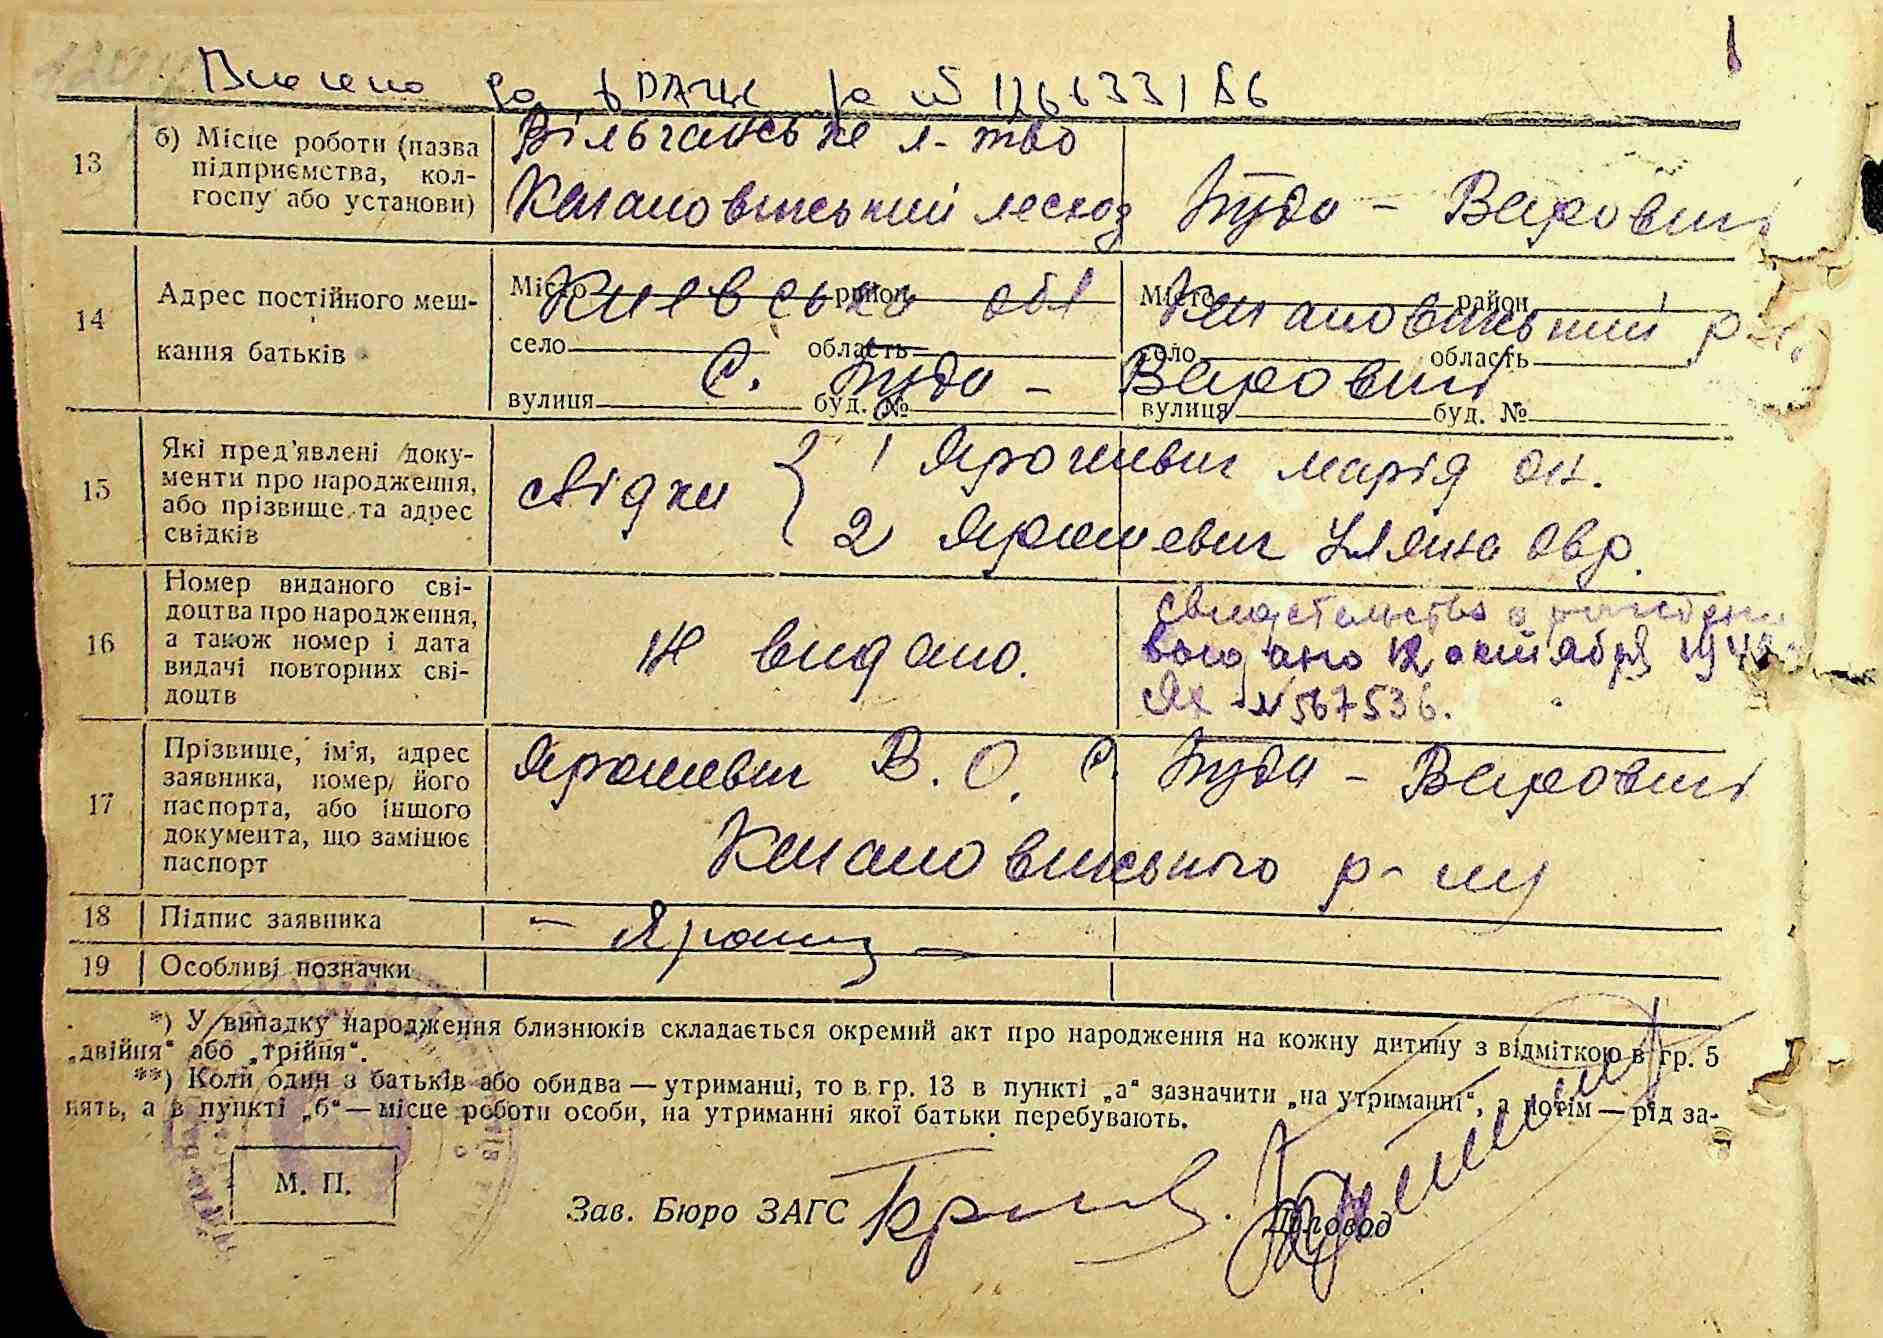 Внесено до ДРАЦС за №
13
б) Місце роботи (назва
підприємства, кол-
госпу або установи)
Вільчанське л-тво
Кагановичський лесхоз
Буда - Варовичі
14
Адрес постійного меш-
кання батьків
Місто район
село область
вулиця буд. №
Місто район
село область
вулиця буд. №
Київська обл Кагановичський р-н.
С. Буда - Варовичі
15
Які пред'явлені доку-
менти про народження,
або прізвище та адрес
свідків
свідки
1 Ярошевич Марія
2 Ярошевич Уляна
16
Номер виданого сві-
доцтва про народження,
а також номер і дата
видачі повторних сві-
доцтв
Не видано.
свидетельство о рождении
выдано 12 октября
ЯХ №567536.
17
Прізвище, ім'я, адрес
заявника, номер його
паспорта, або іншого
документа, що замінює
паспорт
Ярошевич В. О. С. Буда - Варовичі
Кагановичського р-ну
18
Підпис заявника
19
Особливі позначки
*) У випадку народження близнюків складається окремий акт про народження на кожну дитину з відміткою в гр. 5
„двійня“ або „трійня“.
**) Коли один з батьків або обидва — утриманці, то в гр. 13 в пункті „а“ зазначити „на утриманні“, а потім — рід за-
нять, а в пункті „б“ — місце роботи особи, на утриманні якої батьки перебувають.
М. П.
Зав. Бюро ЗАГС
Діловод